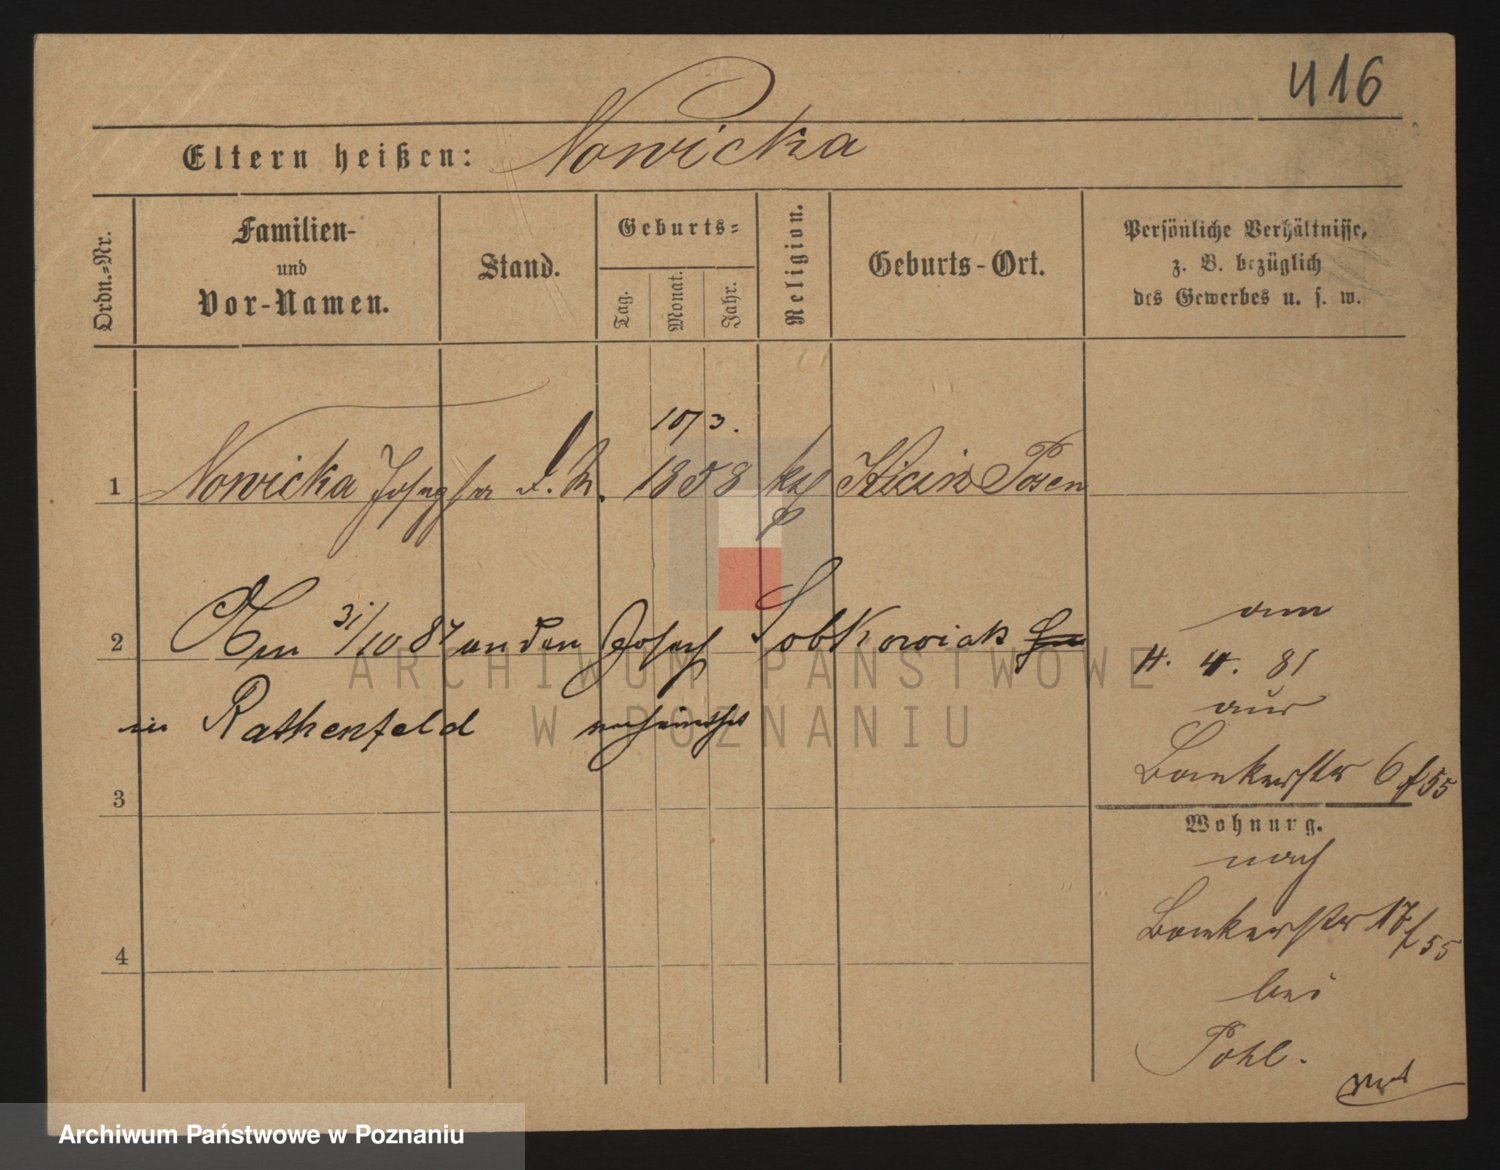 416
Eltern heißen: Nowicka
Ordn.-Nr.
Familien-
und
Vor-Namen.
Stand.
Geburts-
Tag.
Monat.
Jahr.
Religion.
Geburts-Ort.
Persönliche Verhältnisse,
z. B. bezüglich
des Gewerbes u. s. w.
10/3.
1 Nowicka Josepha d. M. 1858 kath Kicin Posen
2 Am 31/10 87 an den Josef Sobkowiak
in Rathenfeld verheirathet
3
4
am
4. 4. 81
aus
Baeckerstr 6 f 55
Wohnung.
nach
Baeckerstr 17 f 55
bei
Pohl.
ARCHIWUM PAŃSTWOWE
W POZNANIU
Archiwum Państwowe w Poznaniu